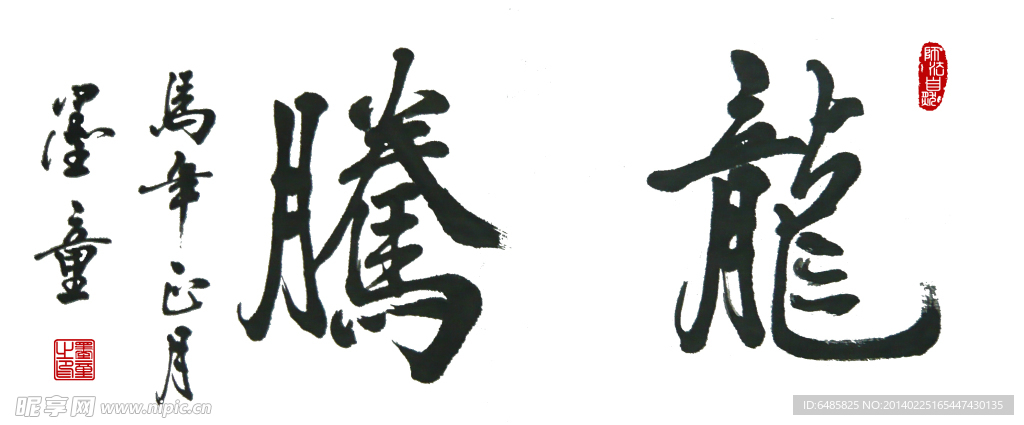 龍騰
馬年正月
墨童
師法自然
墨童之印
昵享网 www.nipic.cn
ID:6485825 NO:20140225165447430135